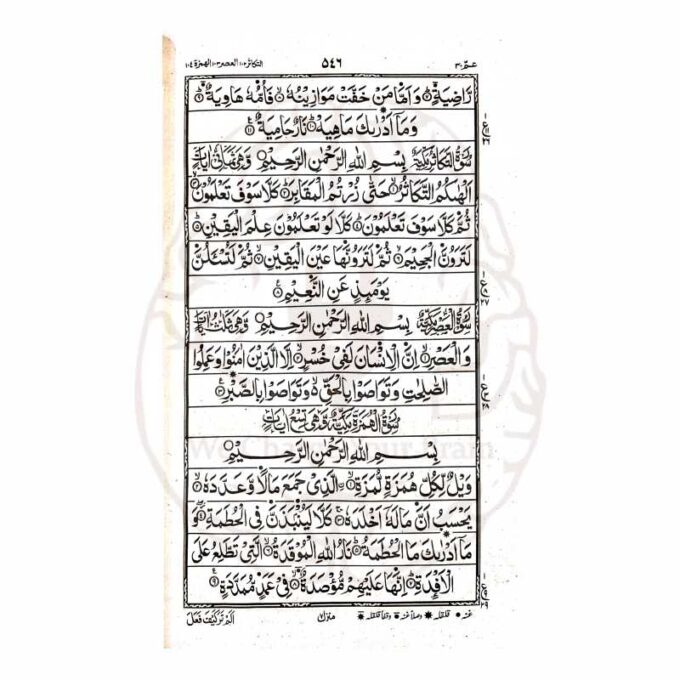 التكاثر١٠٢ العصر١٠٣ الهمزة١٠٤ ٥٤٦ عمّ٣٠
رَّاضِيَةٍ ۝٧ وَاَمَّا مَنْ خَفَّتْ مَوَازِيْنُهٗ ۝٨ فَاُمُّهٗ هَاوِيَةٌ ۝٩
وَمَاۤ اَدْرٰىكَ مَاهِيَهْ ۝١٠ نَارٌ حَامِيَةٌ ۝١١
سُوْرَةُ التَّكَاثُرِ مَكِّيَّةٌ بِسْمِ اللهِ الرَّحْمٰنِ الرَّحِيْمِ ۝ وَّهِيَ ثَمَانِيْ اٰيَاتٍ
اَلْهٰىكُمُ التَّكَاثُرُ ۝١ حَتّٰى زُرْتُمُ الْمَقَابِرَ ۝٢ كَلَّا سَوْفَ تَعْلَمُوْنَ ۝٣
ثُمَّ كَلَّا سَوْفَ تَعْلَمُوْنَ ۝٤ كَلَّا لَوْ تَعْلَمُوْنَ عِلْمَ الْيَقِيْنِ ۝٥
لَتَرَوُنَّ الْجَحِيْمَ ۝٦ ثُمَّ لَتَرَوُنَّهَا عَيْنَ الْيَقِيْنِ ۝٧ ثُمَّ لَتُسْـَٔلُنَّ
يَوْمَىِٕذٍ عَنِ النَّعِيْمِ ۝٨
سُوْرَةُ الْعَصْرِ مَكِّيَّةٌ بِسْمِ اللهِ الرَّحْمٰنِ الرَّحِيْمِ ۝ وَّهِيَ ثَلٰثُ اٰيَاتٍ
وَالْعَصْرِ ۝١ اِنَّ الْاِنْسَانَ لَفِيْ خُسْرٍ ۝٢ اِلَّا الَّذِيْنَ اٰمَنُوْا وَعَمِلُوا
الصّٰلِحٰتِ وَتَوَاصَوْا بِالْحَقِّ ۙ وَتَوَاصَوْا بِالصَّبْرِ ۝٣
سُوْرَةُ الْهُمَزَةِ مَكِّيَّةٌ وَّهِيَ تِسْعُ اٰيَاتٍ
بِسْمِ اللهِ الرَّحْمٰنِ الرَّحِيْمِ ۝
وَيْلٌ لِّكُلِّ هُمَزَةٍ لُّمَزَةِ ۝١ اِۨلَّذِيْ جَمَعَ مَالًا وَّعَدَّدَهٗ ۝٢
يَحْسَبُ اَنَّ مَالَهٗۤ اَخْلَدَهٗ ۝٣ كَلَّا لَيُنْۢبَذَنَّ فِي الْحُطَمَةِ ۝٤ وَ
مَاۤ اَدْرٰىكَ مَا الْحُطَمَةُ ۝٥ نَارُ اللهِ الْمُوْقَدَةُ ۝٦ الَّتِيْ تَطَّلِعُ عَلَى
الْاَفْـِٕدَةِ ۝٧ اِنَّهَا عَلَيْهِمْ مُّؤْصَدَةٌ ۝٨ فِيْ عَمَدٍ مُّمَدَّدَةٍ ۝٩
اَلَمْ تَرَ كَيْفَ فَعَلَ منزل٧ غنه قلقله وصلاً غنه وقفاً قلقله